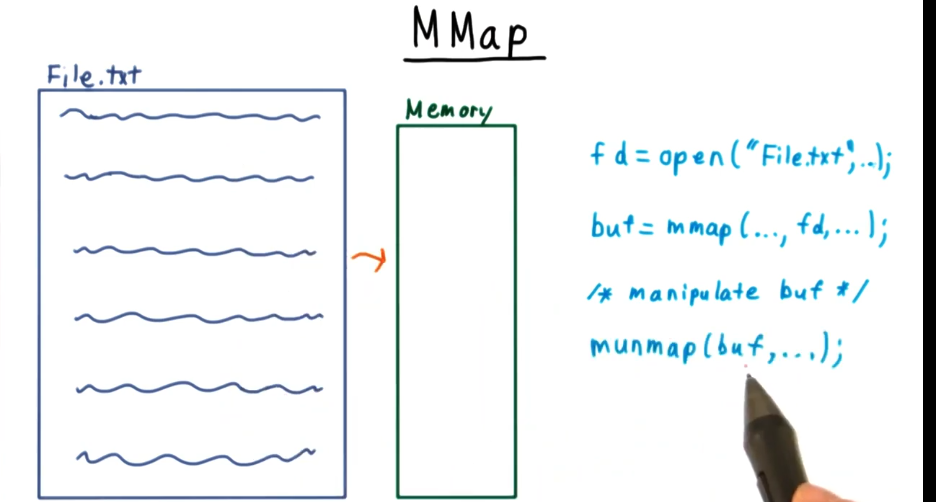 MMap
File.txt
Memory
fd = open("File.txt",...);
buf = mmap(..., fd,...);
/* manipulate buf */
munmap(buf,...);